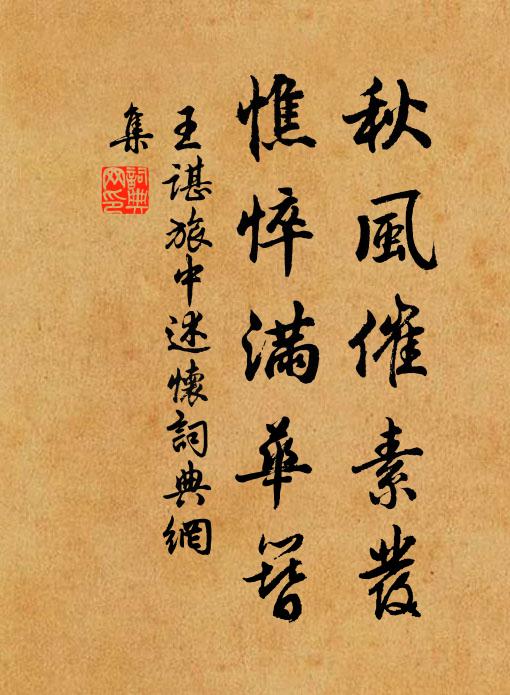 秋風催素發
憔悴滿華簪
王諶旅中述懷詞典網
集
詞典
网印